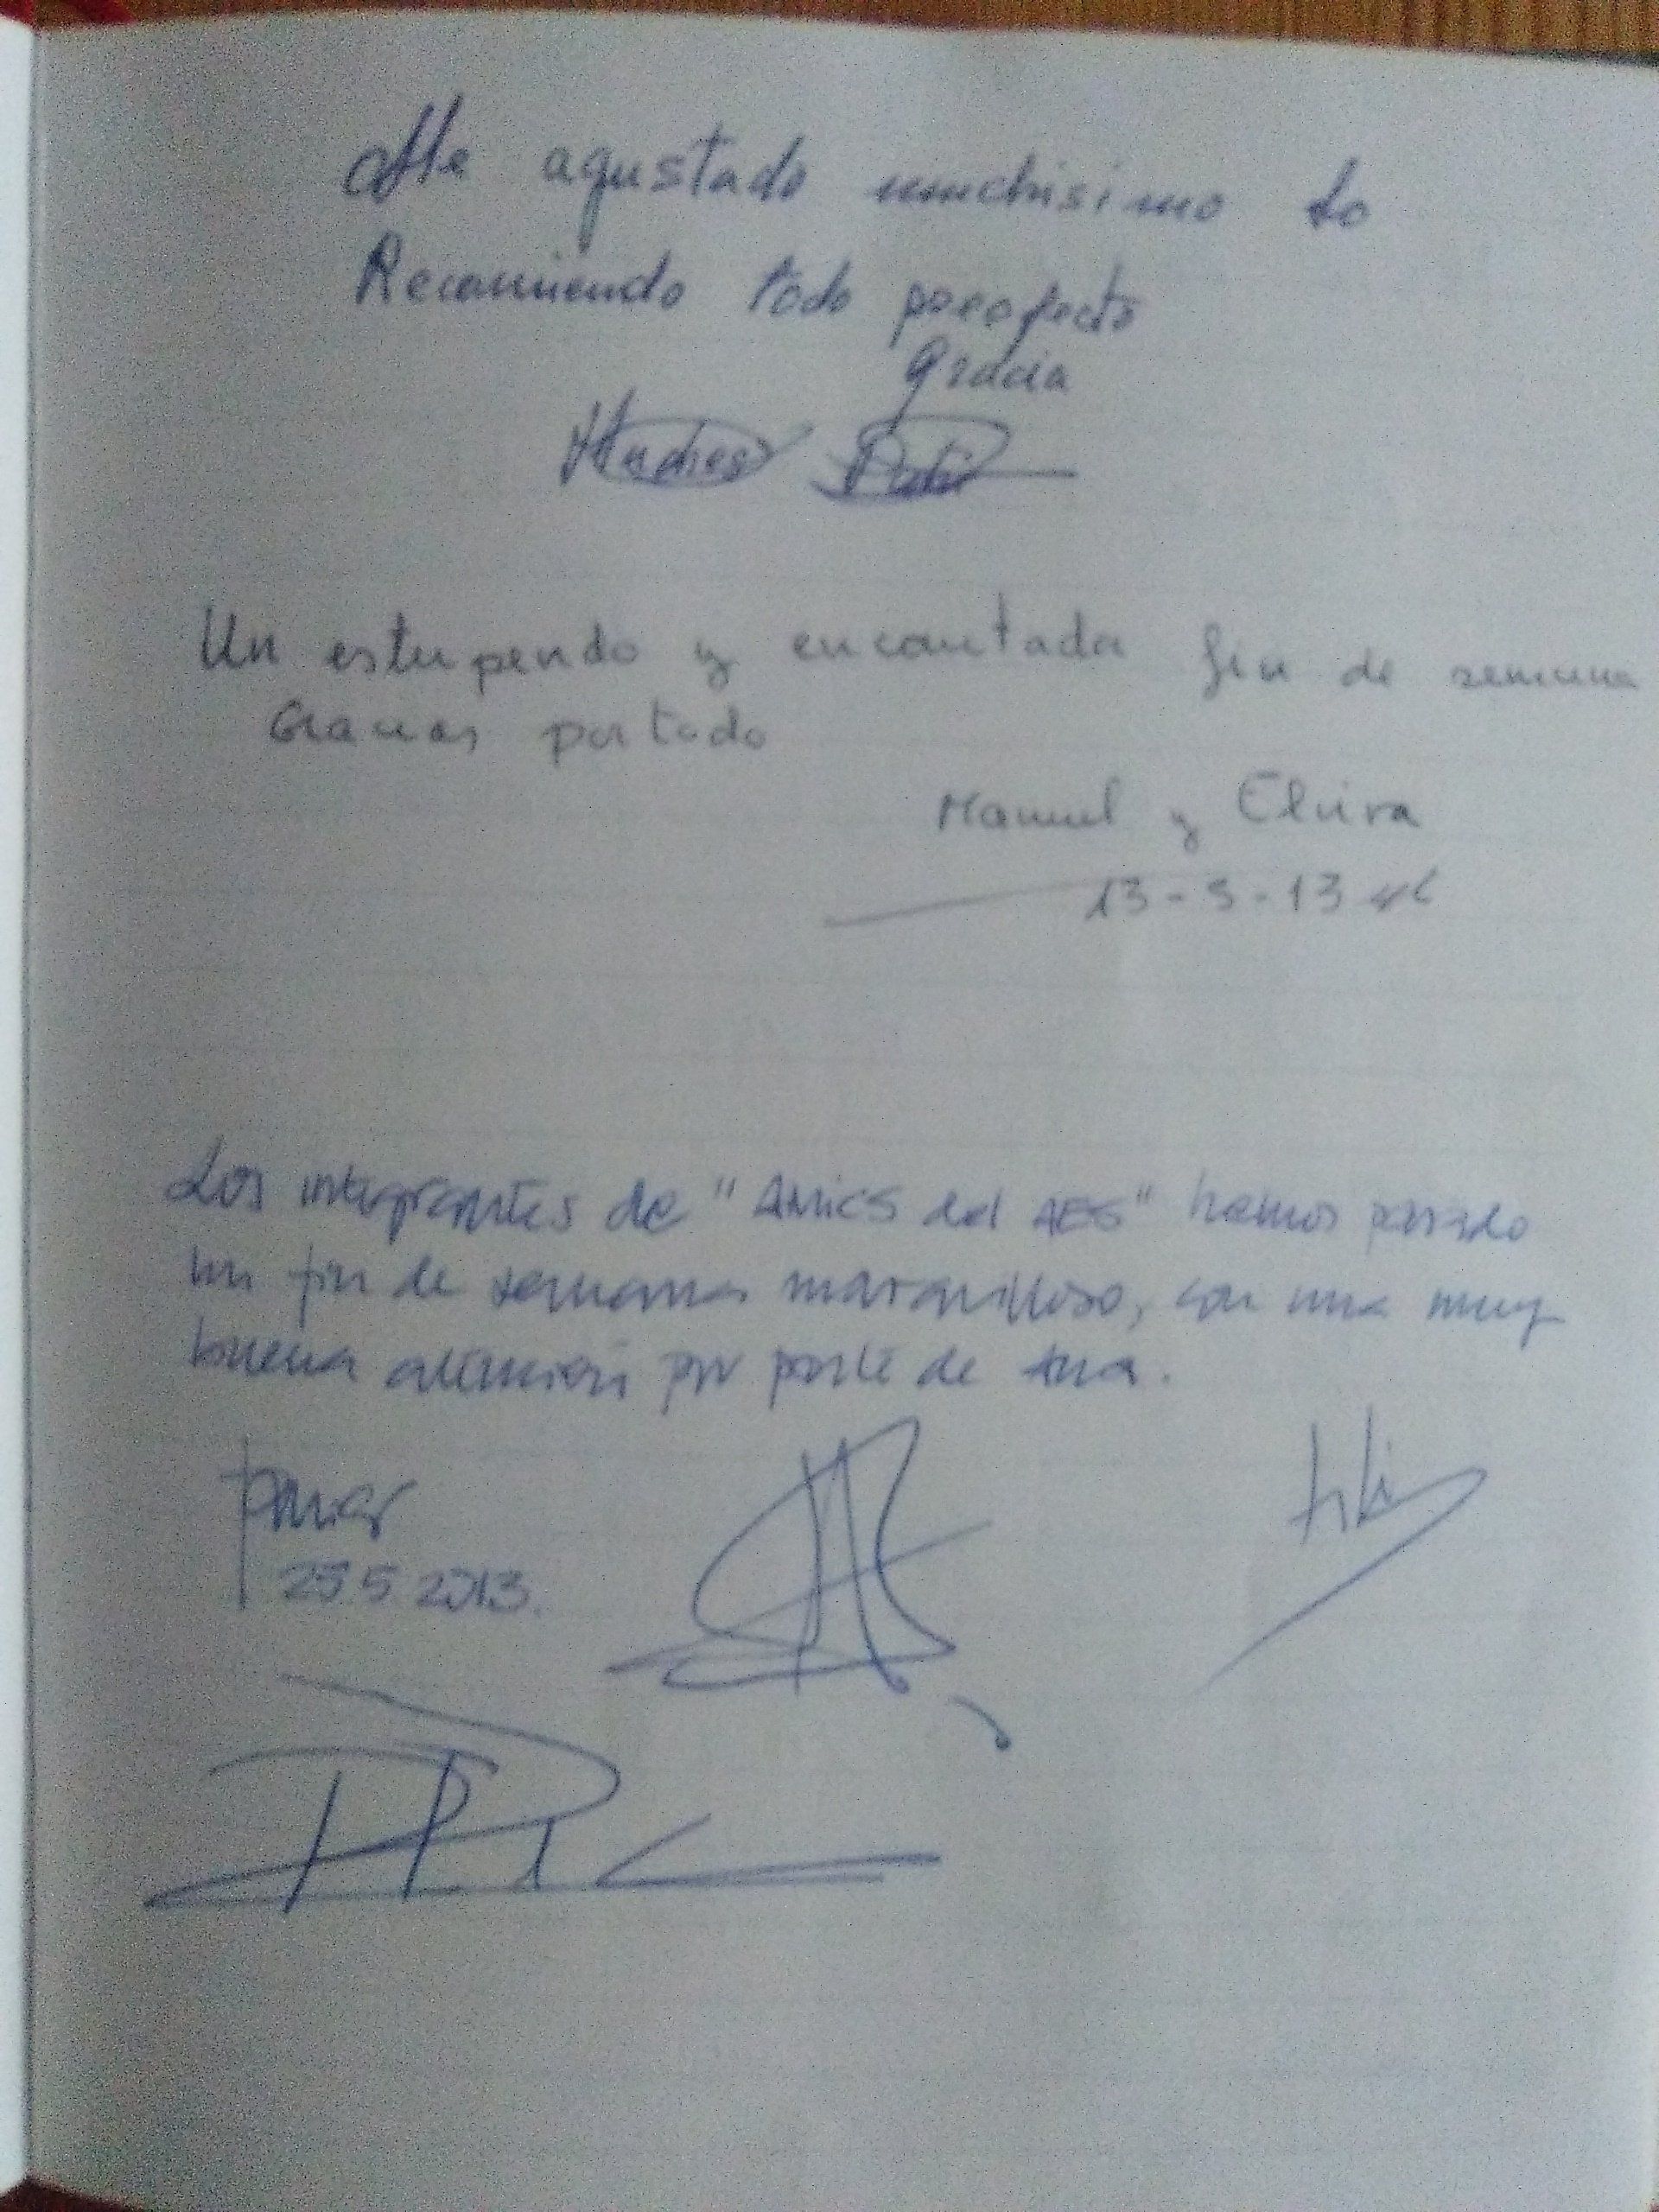 Me agustado muchisimo lo
Recomiendo todo pereofecto
Gracia
Andres
Un estupendo y encantada fin de semana
Gracias por todo
Manuel y Elvira
13-5-13
Los integrantes de "AMICS del AES" hemos pasado
un fin de semana maravilloso, con una muy
buena atención por parte de Ana.
25 5 2013.